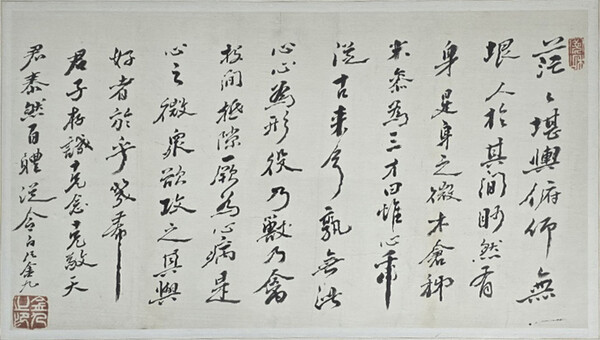 茫〻堪輿俯仰無
垠人於其間眇然有
身是身之微太倉稊
米參為三才曰惟心耳
從古來今孰無此
心心為形役乃獸乃禽
投間抵隙厥為心病是
心之微衆欲攻之其與
好者於乎幾希
君子存誠克念克敬天
君泰然百體從令 白凡金九
金九之印